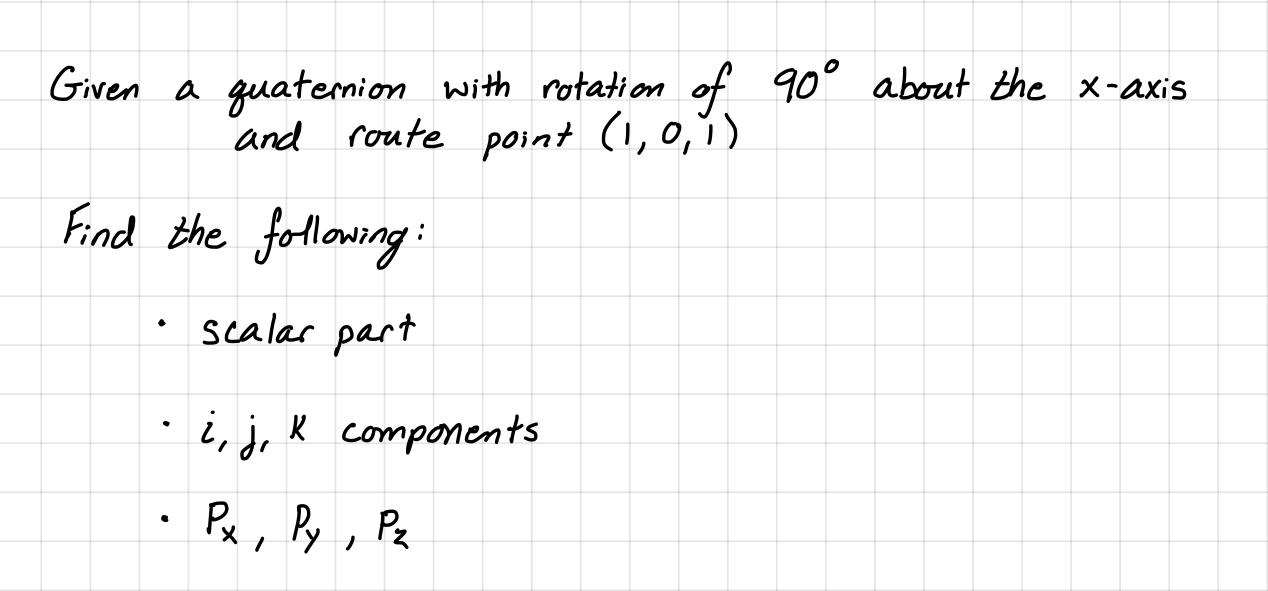 Given a quaternion with rotation of 90° about the x-axis
and route point (1, 0, 1)
Find the following:
• scalar part
• i, j, k components
• Px, Py, Pz